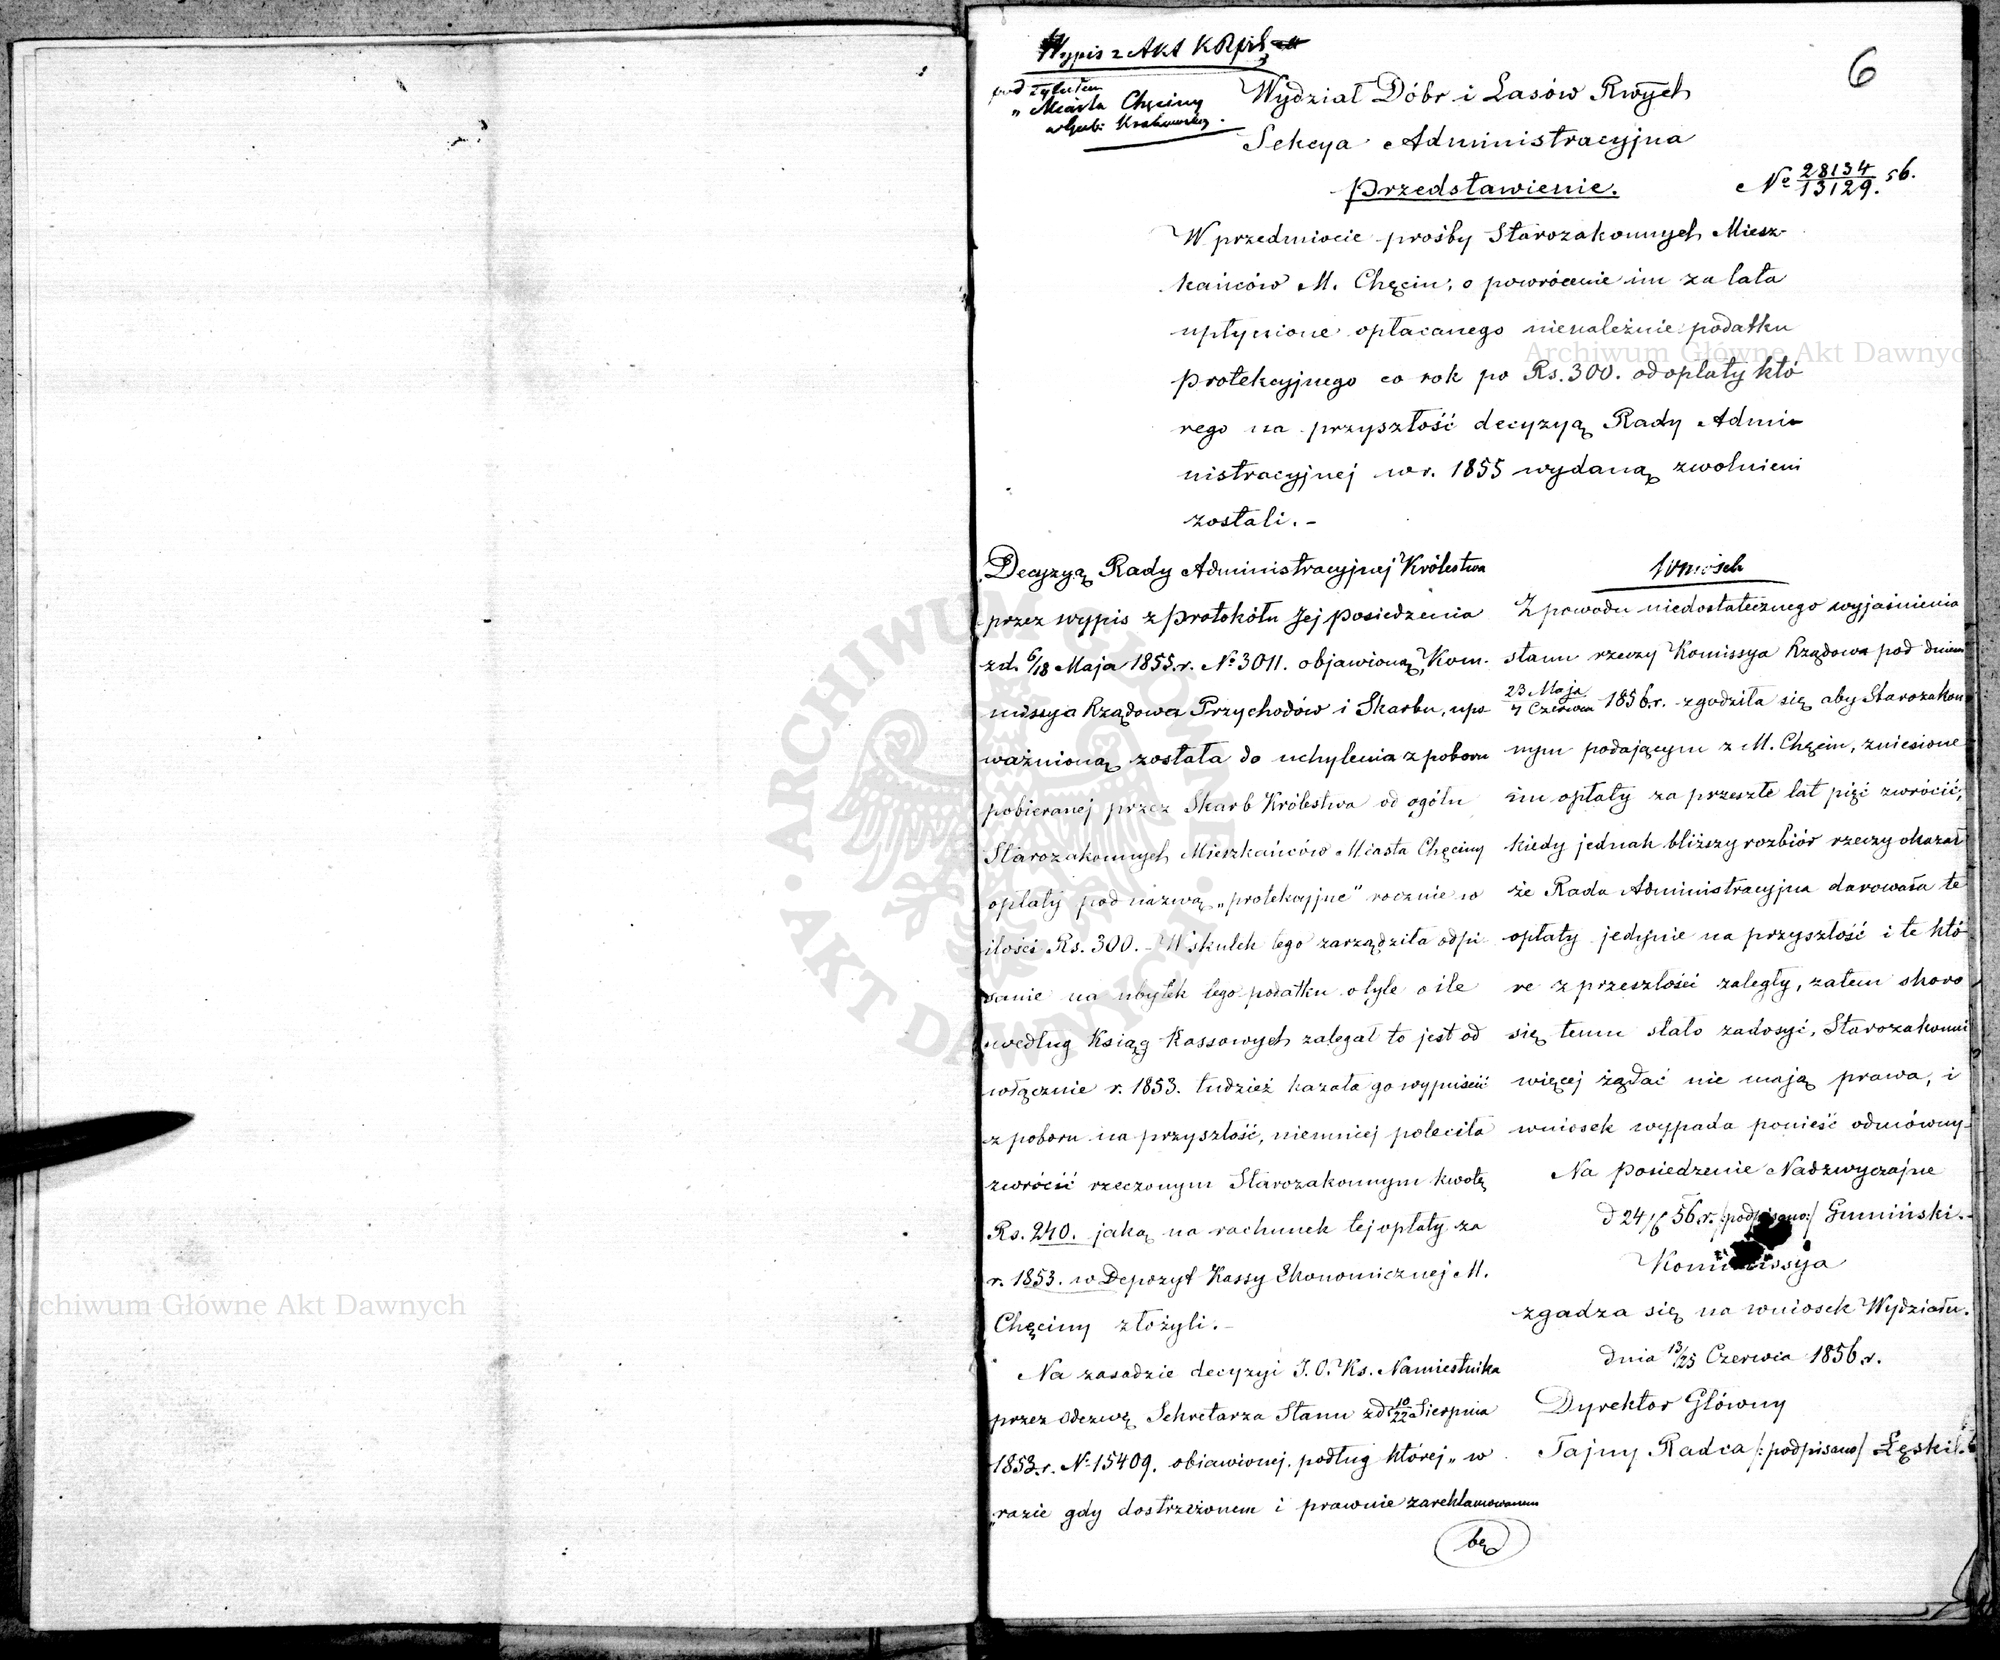 6
Wypis z Akt KRPiS
pod Tytułem
„Miasta Chęciny
w Gub: Krakowskiej.
Wydział Dóbr i Lasów Rwych
Sekcya Administracyjna
Przedstawienie.
No 28134/13129. 56.
W przedmiocie prośby Starozakonnych Miesz-
kańców M. Chęcin, o powrócenie im za lata
upłynione opłacanego nienależnie podatku
protekcyjnego co rok po Rs. 300. od opłaty któ
rego na przyszłość decyzyą Rady Admi-
nistracyjnej w r. 1855 wydaną zwolnieni
zostali. -
Decyzyą Rady Administracyjnej Królestwa
przez wypis z Protokółu Jej Posiedzenia
z d. 6/18 Maja 1855. r. No 3011. objawioną, Kom-
missya Rządowa Przychodów i Skarbu, upo
ważnioną została do uchylenia z poboru
pobieranej przez Skarb Królestwa od ogółu
Starozakonnych Mieszkańców Miasta Chęciny
opłaty pod nazwą „protekcyjne" rocznie w
ilości Rs. 300. - W skutek tego zarządziła odpi
sanie na ubytek tego podatku o tyle o ile
według Ksiąg Kassowych zalegał to jest od
włącznie r. 1853. tudzież kazała go wypuścić
z poboru na przyszłość, niemniej poleciła
zwrócić rzeczonym Starozakonnym kwotę
Rs. 240. jaką na rachunek tej opłaty za
r. 1853. w Depozyt Kassy Ekonomicznej M.
Chęciny złożyli. -
Na zasadzie decyzyi J. O. Ks. Namiestnika
przez Odezwę Sekretarza Stanu z d. 10/22 Sierpnia
1853. r. No 15409. obiawionej, podług której „w
„razie gdy dostrzeżonem i prawnie zareklamowanem
bę
Wniosek
Z powodu niedostatecznego wyjaśnienia
stanu rzeczy Komissya Rządowa pod dniem
23 Maja/4 Czerwca 1856. r. zgodziła się aby Starozakon
nym podającym z M. Chęcin, zniesione
im opłaty za przeszłe lat pięć zwrócić,
kiedy jednak bliższy rozbiór rzeczy okazał
że Rada Administracyjna darowała te
opłaty jedynie na przyszłość i te któ
re z przeszłości zaległy, zatem skoro
się temu stało zadosyć, Starozakonni
więcej żądać nie mają prawa, i
wniosek wypada ponieść odmówny-
Na Posiedzenie Nadzwyczajne
d 24/6 56. r. /:podpisano:/ Gumiński. -
Kommissya
zgadza się na wniosek Wydziału.
dnia 13/25 Czerwca 1856. r.
Dyrektor Główny
Tajny Radca /:podpisano/ Łęski.
Archiwum Główne Akt Dawnych
Archiwum Główne Akt Dawnych
ARCHIWUM GŁÓWNE · AKT DAWNYCH ·